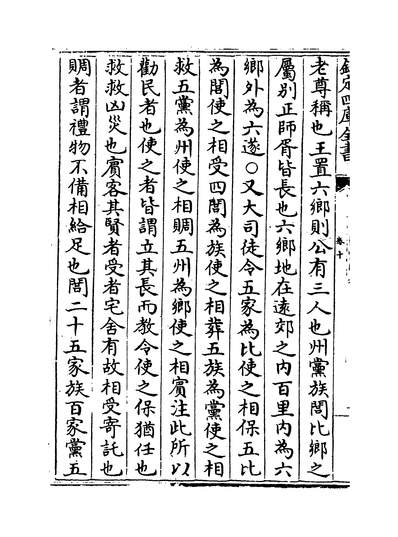 欽定四庫全書
卷十
老尊稱也王置六鄉則公有三人也州黨族閭比鄉之
屬別正師胥皆長也六鄉地在遠郊之內百里內為六
鄉外為六遂○又大司徒令五家為比使之相保五比
為閭使之相受四閭為族使之相葬五族為黨使之相
救五黨為州使之相賙五州為鄉使之相賓注此所以
勸民者也使之者皆謂立其長而教令使之保猶任也
救救凶災也賓客其賢者受者宅舍有故相受寄託也
賙者謂禮物不備相給足也閭二十五家族百家黨五